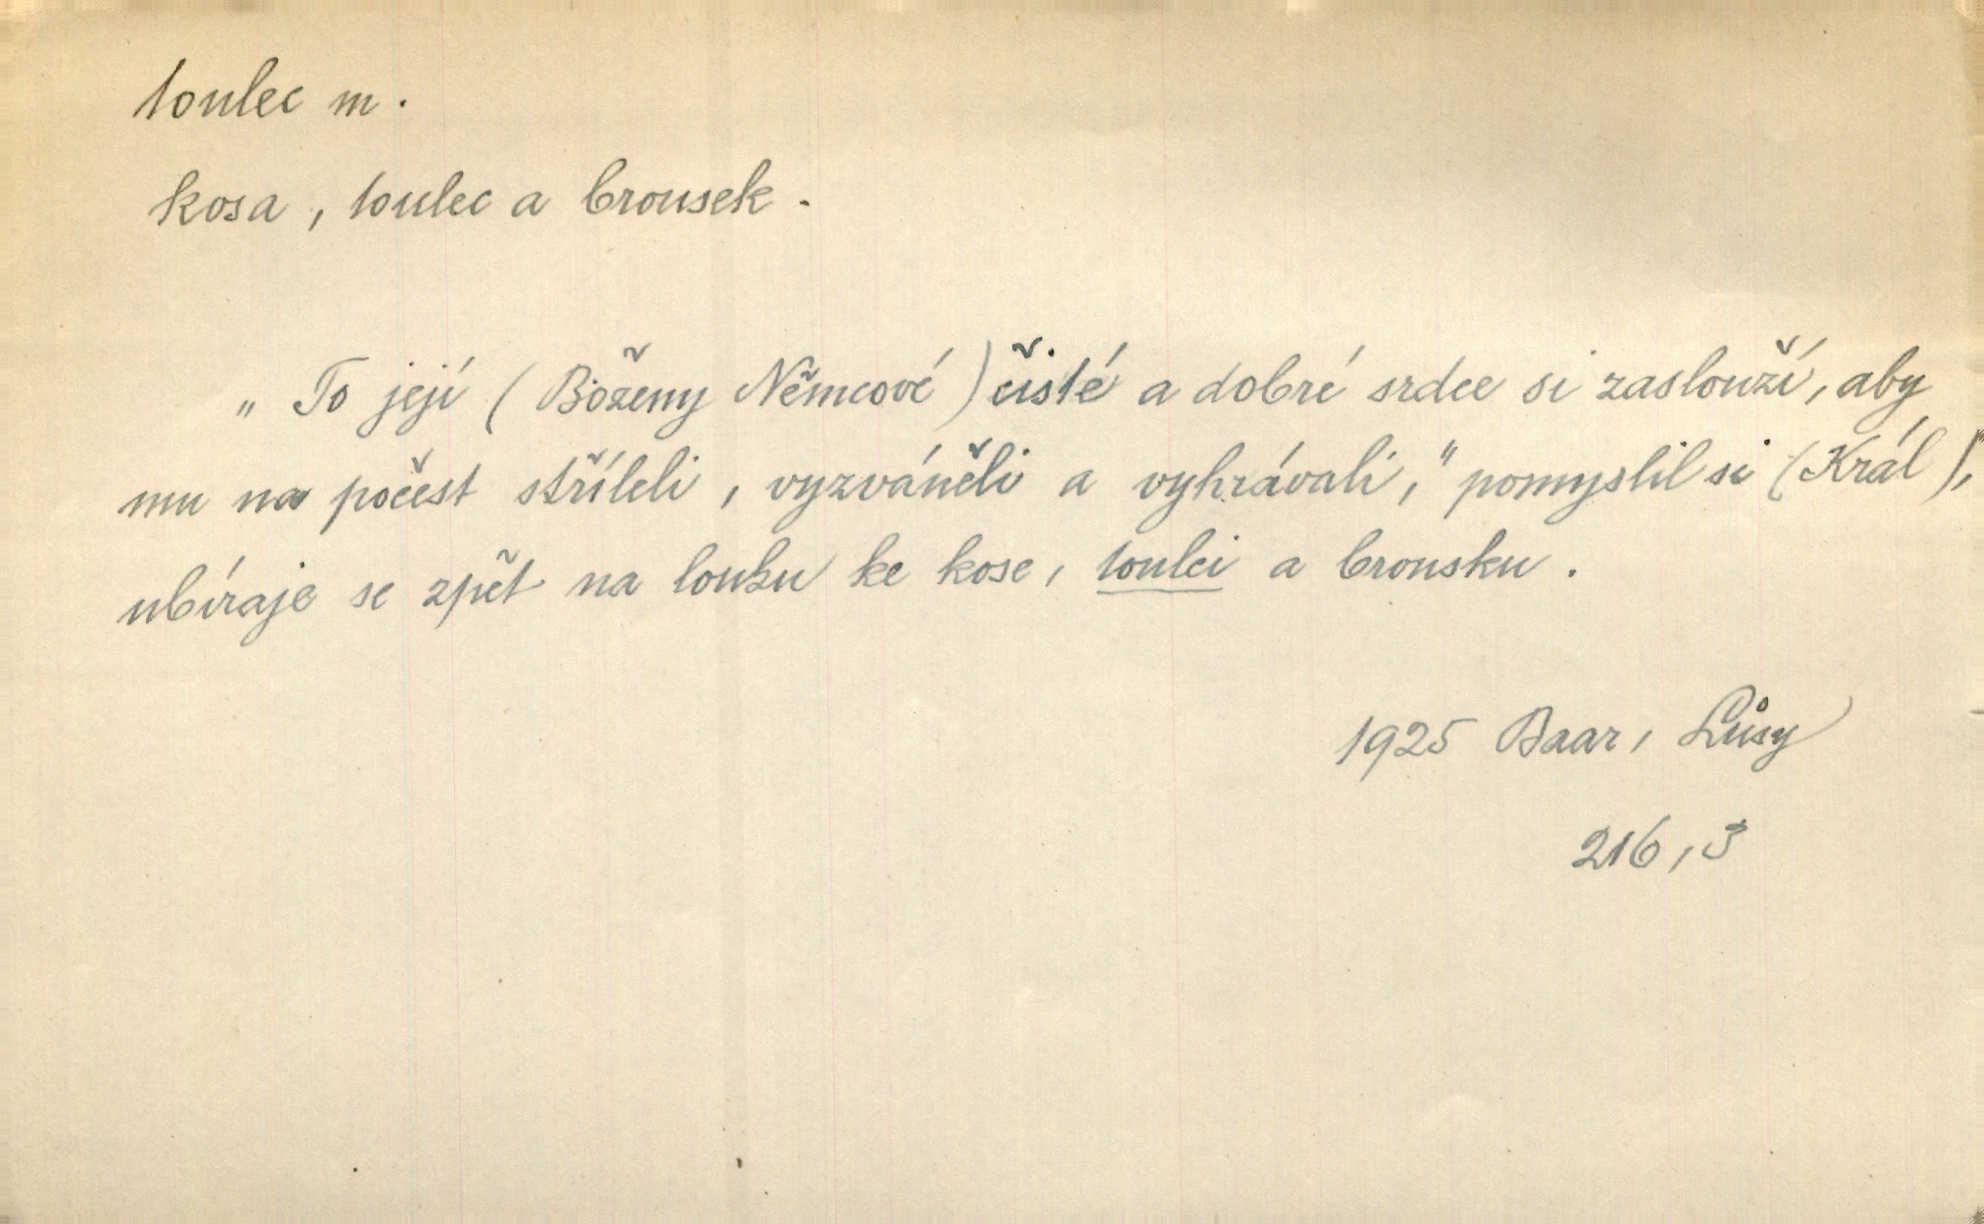 toulec m.
kosa, toulec a brousek.
„To její (Boženy Němcové) čisté a dobré srdce si zaslouží, aby
mu na počest stříleli, vyzváněli a vyhrávali," pomyslil si (Král),
ubíraje se zpět na louku ke kose, toulci a brousku.
1925 Baar, Lůsy
216,3